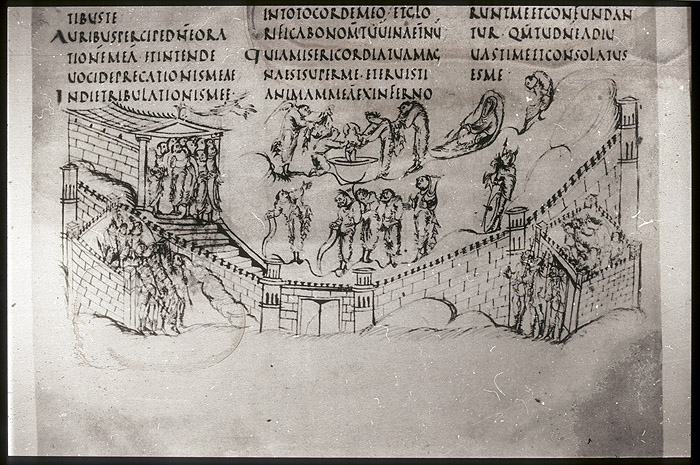 TIBUSTE
AURIBUSPERCIPEDN̄EORA
TIONĒMEĀ· ETINTENDE
UOCIDEPRECATIONISMEAE
INDIETRIBULATIONISMEE·
INTOTOCORDEMEO· ETGLO
RIFICABONOMTŪUINAE͞INŪ
QUIAMISERICORDIATUAMAG
NAESTSUPERME· ETERUISTI
ANIMAMMEĀEXINFERNO
RUNTMEETCONFUNDAN
TUR· QM̄TUDN̄EADIU
UASTIMEETCONSOLATUS
ESME·